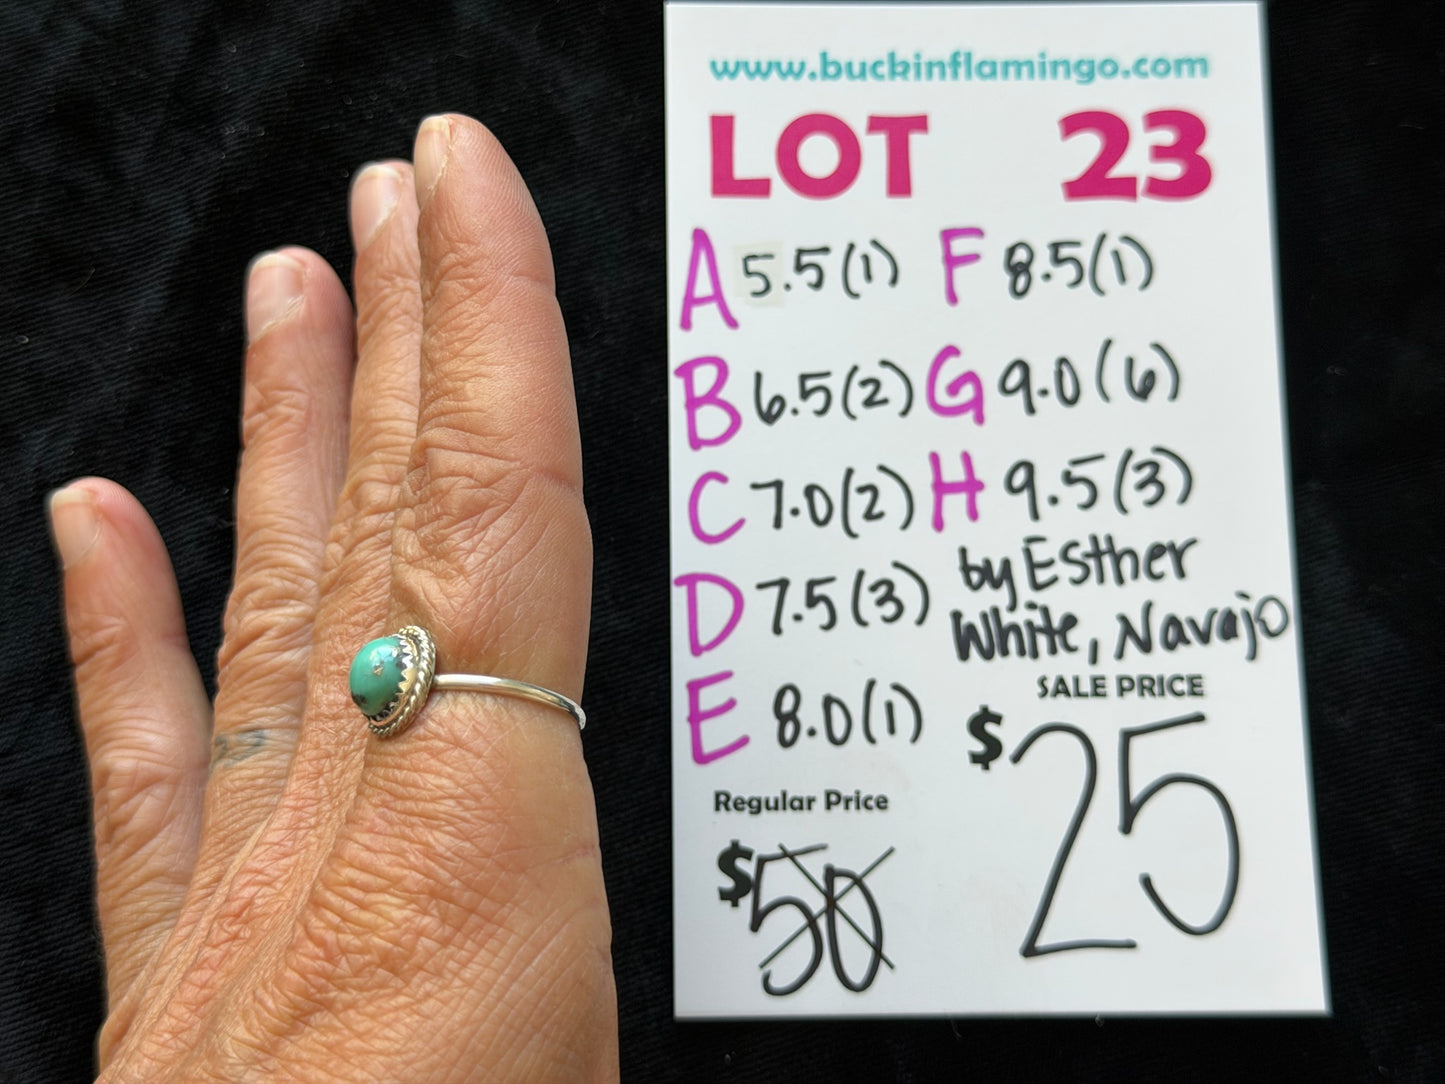 www.buckinflamingo.com
LOT 23
A 5.5(1) F 8.5(1)
B 6.5(2) G 9.0(6)
C 7.0(2) H 9.5(3)
by Esther
D 7.5(3) White, Navajo
SALE PRICE
E 8.0(1) $25
Regular Price
$50